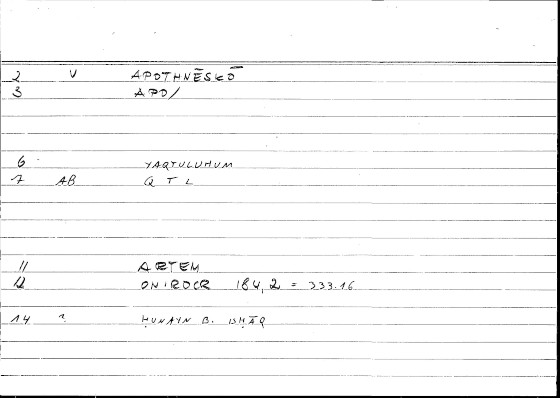 2 V APOTHNĒSKŌ
3 APO/
6 YAQTULUHUM
7 AB Q T L
11 ARTEM
12 ONIROCR 184,2 = 333.16
14 ḤUNAYN B. ISḤĀQ